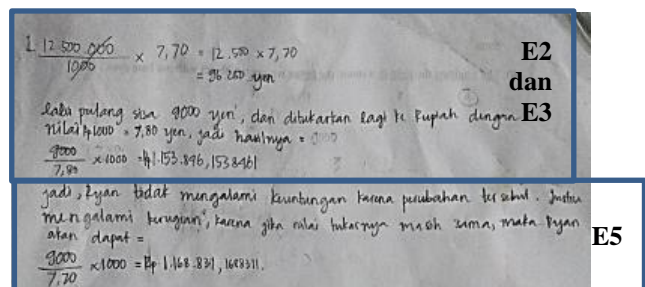 1. 12.500.000/1000 × 7,70 = 12.500 × 7,70
= 96 250 yen
E2
dan
E3
lalu pulang sisa 9000 yen, dan ditukarkan lagi ke Rupiah dengan
nilai Rp1000 = 7,80 yen, jadi hasilnya =
9000/7,80 × 1000 = Rp1.153.846,1538461
jadi, Ryan tidak mengalami keuntungan karena perubahan tersebut. Justru
mengalami kerugian, karena jika nilai tukarnya masih sama, maka Ryan
akan dapat =
9000/7,70 × 1000 = Rp 1.168.831,1688311.
E5